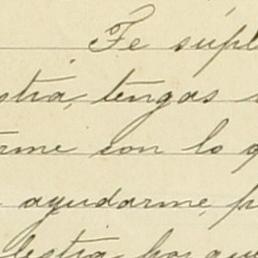 Te supl
stia, tengas
rme con lo q
ayudarme, p
lestia, por que